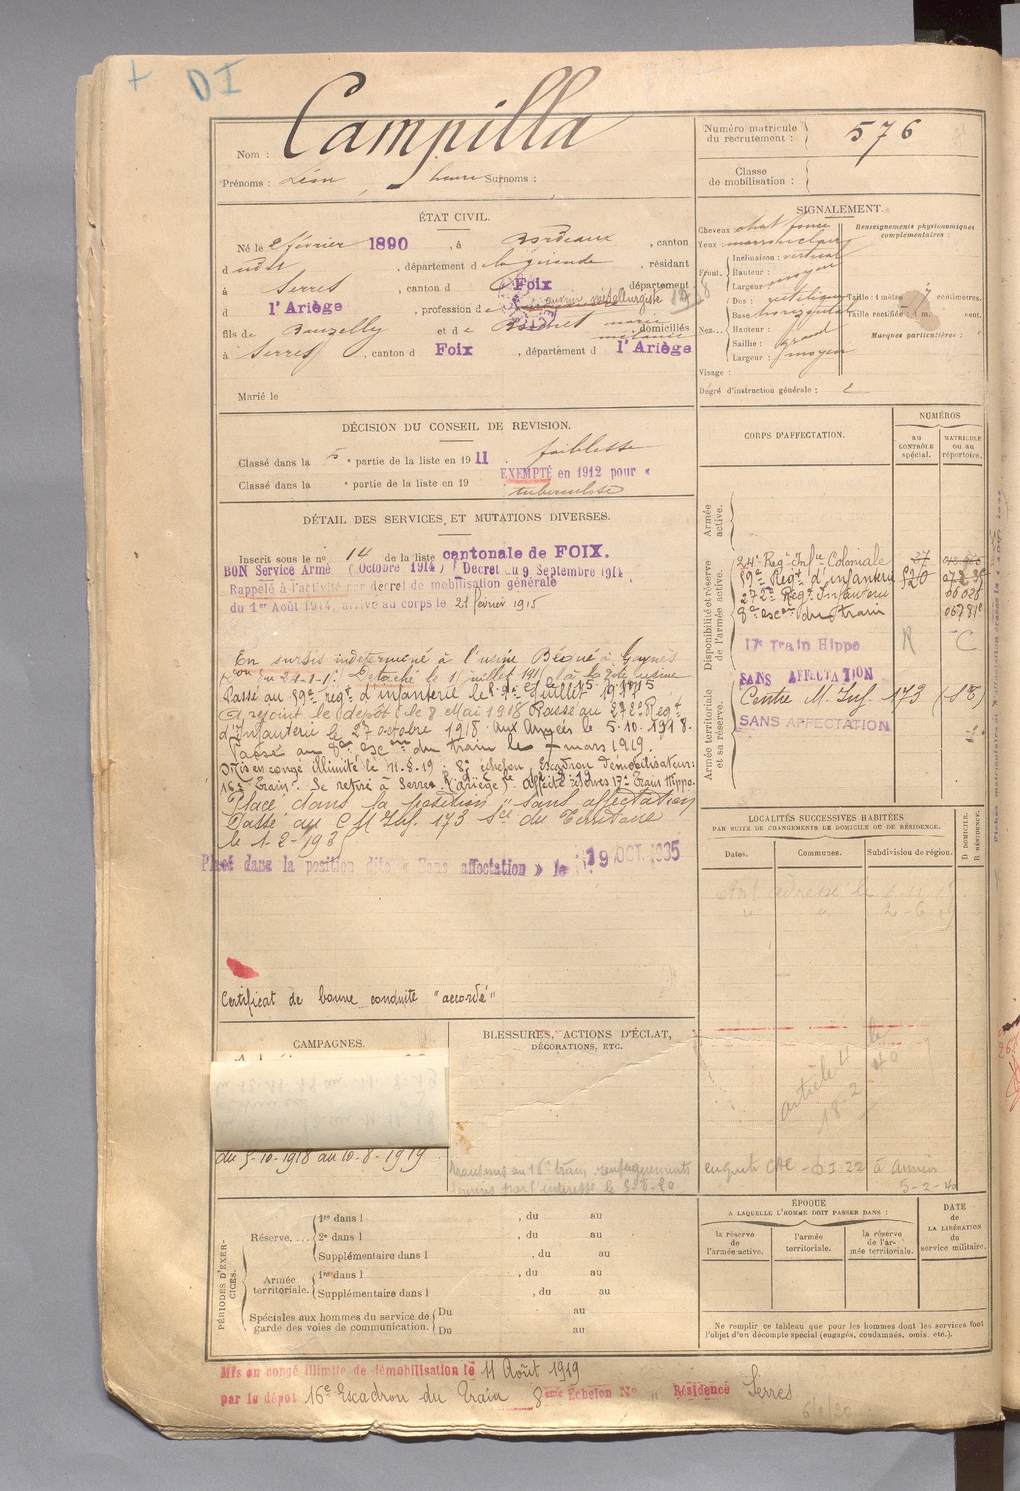 + DI
Nom : Campilla
Numéro matricule du recrutement : 576
Prénoms : Léon, henri Surnoms :
Classe de mobilisation :
ÉTAT CIVIL.
Né le 2 février 1890, à Bordeaux, canton
d udit, département d e la gironde, résidant
à Serres, canton d Foix département
d l'Ariège, profession de ouvrier métallurgiste
fils de Bauzelly et de marie mélanie domiciliés
à Serres, canton d Foix, département d l'Ariège
Marié le
SIGNALEMENT.
Cheveux chat. foncé
Yeux marron clair
Front. Inclinaison : vertical
Hauteur :
Largeur : moyen
Nez. Dos : rectiligne
Base : horizontal
Hauteur :
Saillie : grand
Largeur : moyen
Visage :
Renseignements physionomiques complémentaires :
Taille : 1 mètre centimètres.
Taille rectifiée : 1 m. cent.
Marques particulières :
Degré d'instruction générale : 2
DÉCISION DU CONSEIL DE REVISION.
Classé dans la 5e partie de la liste en 1911 faiblesse
EXEMPTÉ en 1912 pour «
Classé dans la e partie de la liste en 19 tuberculose
DÉTAIL DES SERVICES ET MUTATIONS DIVERSES.
Inscrit sous le n° 14 de la liste cantonale de FOIX.
BON Service Armé (Octobre 1914) Décret du 9 Septembre 1914
Rappelé à l'activité par décret de mobilisation générale
du 1er Août 1914, arrivé au corps le 21 février 1915
En sursis indéterminé à l'usine
Détaché le 1 juillet 191 à la usine
Passé au 59e régt d'infanterie le
A rejoint le dépôt le 8 Mai 1918 Passé au 272e Régt
d'Infanterie le 27 octobre 1918 aux Armées le 5.10.1918.
Passé au 8e escon du train le 7 mars 1919.
Mis en congé illimité le 11.8.19 : 8e échelon, Escadron démobilisateur:
16e Train. Se retire à Serres (Ariège). Affecté réserves 17e Train Hippo.
Placé dans la position "sans affectation
Passé au C M Inf. 173 Sce du Territoire
le 1-2-1935
Placé dans la position dite « Sans affectation » le 19 OCT. 1935
Certificat de bonne conduite "accordé"
CORPS D'AFFECTATION.
NUMÉROS
AU CONTRÔLE spécial.
MATRICULE ou au répertoire.
Armée active.
Disponibilité et réserve de l'armée active.
24e Regt Infie Coloniale 27
59e Regt d'infanterie
272e Regt Infanterie
8e escon du train
17e Train Hippo R C
SANS AFFECTATION
Armée territoriale et sa réserve.
Centre M. Inf. 173 (ST)
SANS AFFECTATION
LOCALITÉS SUCCESSIVES HABITÉES
PAR SUITE DE CHANGEMENTS DE DOMICILE OU DE RÉSIDENCE.
Dates. Communes. Subdivision de région.
D. DOMICILE. R. RÉSIDENCE.
article 4
18-2-40
CAMPAGNES.
du 5-10-1918 au 10-8-1919.
BLESSURES, ACTIONS D'ÉCLAT,
DÉCORATIONS, ETC.
au 16e train renseignements
fournis par l'intéressé le
5-2-40
PÉRIODES D'EXERCICES.
Réserve.... 1re dans l , du au
2e dans l , du au
Supplémentaire dans l , du au
Armée territoriale. 1re dans l , du au
Supplémentaire dans l , du au
Spéciales aux hommes du service de garde des voies de communication. Du au
Du au
ÉPOQUE
A LAQUELLE L'HOMME DOIT PASSER DANS :
la réserve de l'armée active.
l'armée territoriale.
la réserve de l'armée territoriale.
DATE de LA LIBÉRATION du service militaire.
Ne remplir ce tableau que pour les hommes dont les services font
l'objet d'un décompte spécial (engagés, condamnés, omis, etc.).
Mis en congé illimité de démobilisation le 11 Août 1919
par le dépôt 16e Escadron du Train 8ème Échelon N° " Résidence Serres